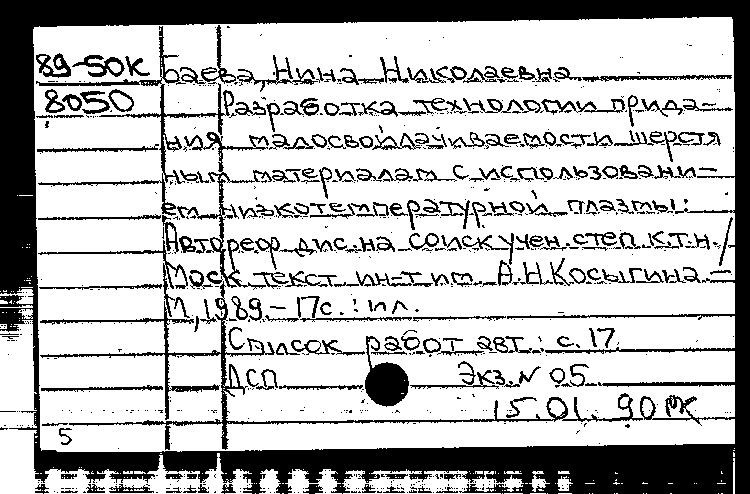 89-50К Баева, Нина Николаевна
8050 Разработка технологии прида-
ния малосвойлачиваемости шерстя
ным материалам с использовани-
ем низкотемпературной плазмы:
Автореф. дис. на соиск. учен. степ. к.т.н. /
Моск. текст. ин-т им. А.Н. Косыгина. -
М, 1989. - 17с. : ил.
Список работ авт.: с. 17.
ДСП Экз. N 05
15.01.90
5